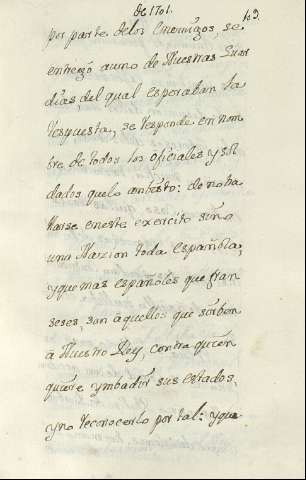 de 1701. 109.
por parte delos Enemigos, se
entregó a uno de Nuestras Guar
dias, del qual esperaban la
respuesta, se responde en nom
bre de todos los oficiales y sol
dados que lo : de no ha
llarse en este exercito sino
una Nazion toda española,
y que mas españoles que fran
seses, son aquellos que sirben
a Nuestro Rey, contra quien
quiere ymbadir sus estados,
y no reconocerlo por tal: y que